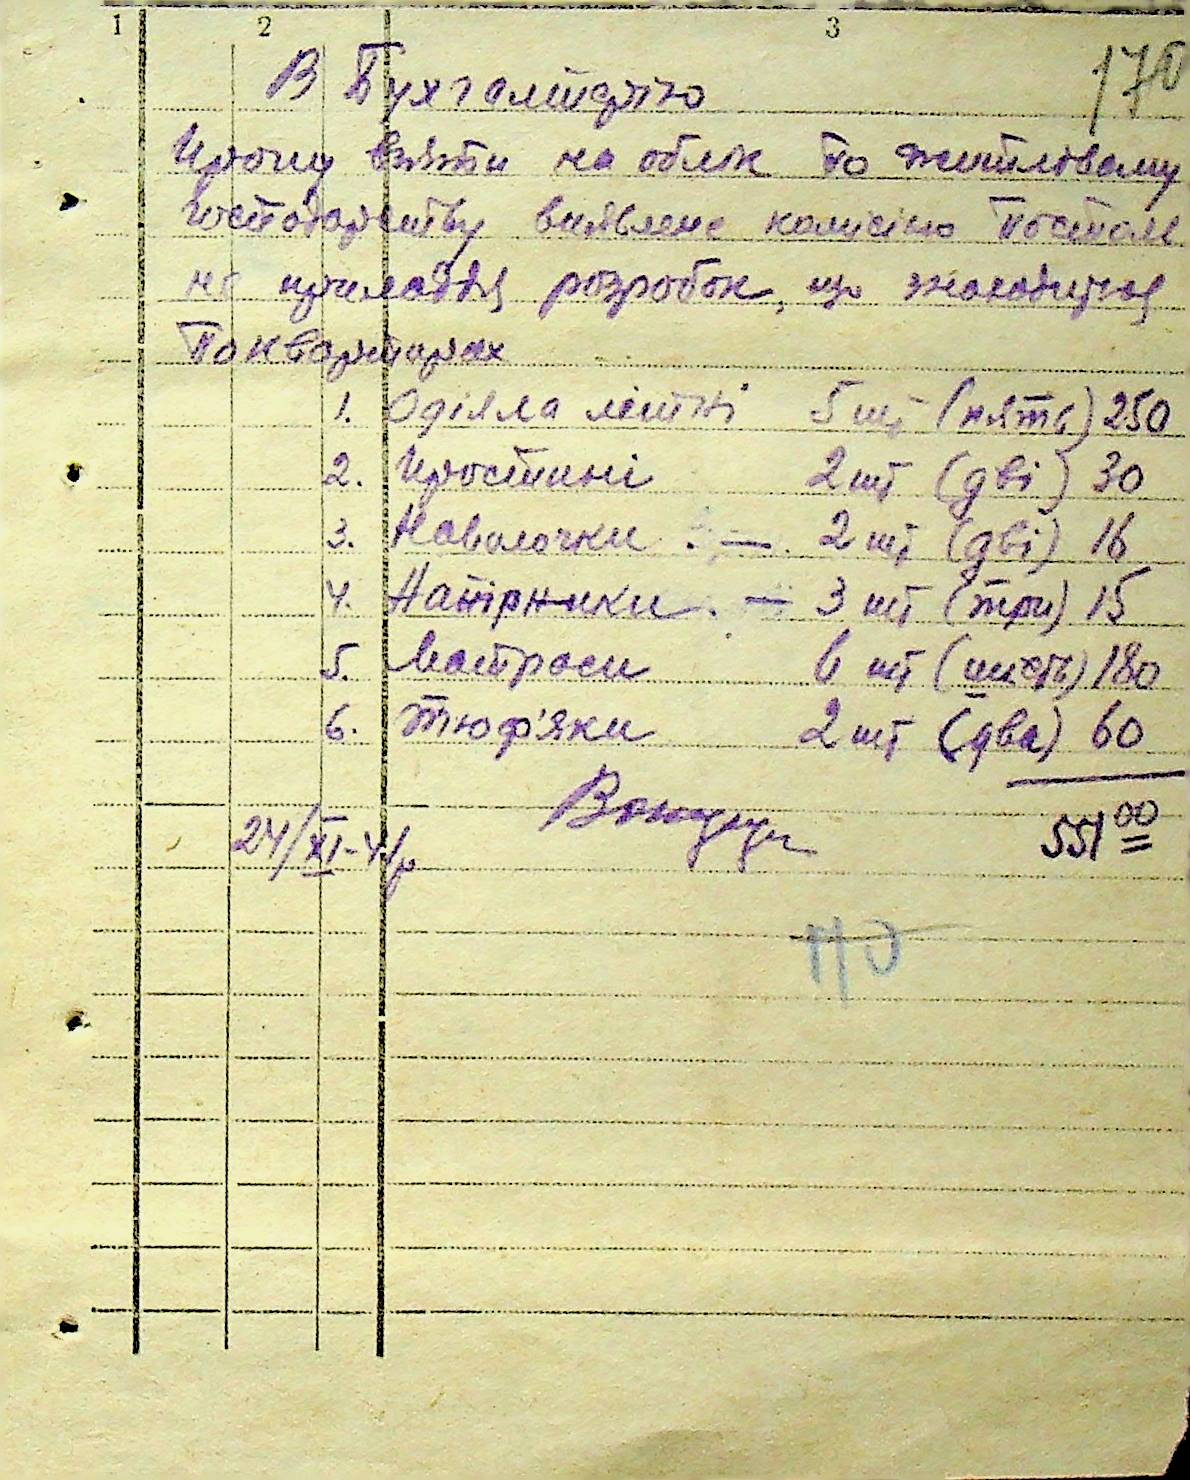 1 2 3
170
В Бухгалтерію
Прошу взяти на облік по житловому
господарству виявлене комісією постільне
приладдя розробок, що знаходиться
по квартирах
1. Одіяла літні 5 шт (пять) 250
2. Простині 2 шт (дві) 30
3. Наволочки - 2 шт (дві) 16
4. Натірники - 3 шт (три) 15
5. Матраси 6 шт (шість) 180
6. Тюф'яки 2 шт (два) 60
551 00
24/XI-41р